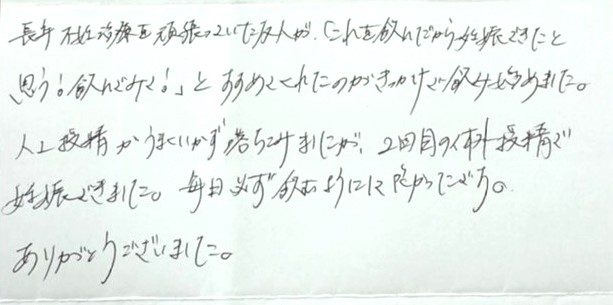 長年不妊治療を頑張っていた友人が、「これを飲んだから妊娠できたと
思う！飲んでみて！」とすすめてくれたのがきっかけで飲み始めました。
人工授精がうまくいかず落ちこみましたが、2回目の体外授精で
妊娠できました。毎日必ず飲むようにして良かったです。
ありがとうございました。